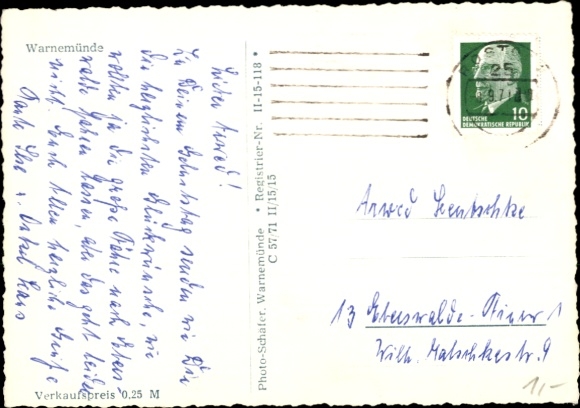 Warnemünde
Lieber Arwed!
Zu Deinem Geburtstag senden wir Dir
die herzlichsten Glückwünsche, wir
wollten ja die große Fähre nach
fahren lassen, aber das geht leider
nicht. Euch Allen herzliche Grüße
Tante u. Onkel Hans
Verkaufspreis 0,25 M
Photo-Schäfer, Warnemünde * Registrier-Nr. II-15-118 *
C 57/71 II/15/15
ROST
25
10
DEUTSCHE
DEMOKRATISCHE REPUBLIK
Arwed
13 Eberswalde-Finow 1
Wilh. Matschkestr. 9
1,-